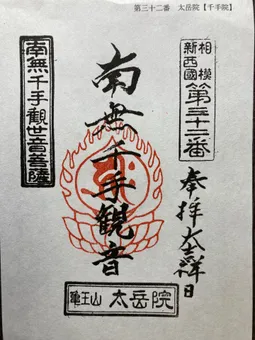 第三十二番 太岳院【千手院】
相模
新西國
第三十二番
奉拝 大吉祥日
南無千手観音
南無千手観世音菩薩
亀王山 太岳院